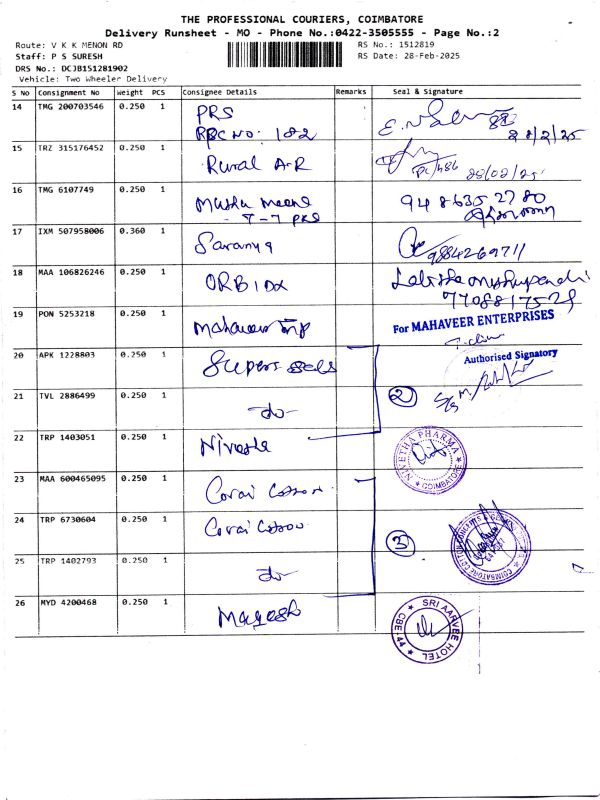 THE PROFESSIONAL COURIERS, COIMBATORE
Delivery Runsheet - MO - Phone No.:0422-3505555 - Page No.:2
Route: V K K MENON RD
RS No.: 1512819
Staff: P S SURESH
RS Date: 28-Feb-2025
DRS No.: DCJB151281902
Vehicle: Two Wheeler Delivery
S No Consignment No Weight PCS Consignee Details Remarks Seal & Signature
14 TMG 200703546 0.250 1 PRS
RRC NO: 182 28/2/25
15 TRZ 315176452 0.250 1 Rural A-R PC/486 28/02/25
16 TMG 6107749 0.250 1 948635 2780
17 IXM 507958006 0.360 1 Saranya 9884269711
18 MAA 106826246 0.250 1 ORBIDX
7708817529
19 PON 5253218 0.250 1 Mahaveer Enp For MAHAVEER ENTERPRISES
20 APK 1228803 0.250 1 Supers seals Authorised Signatory
21 TVL 2886499 0.250 1 do 2
22 TRP 1403051 0.250 1 Nivetha NIVETHA PHARMA COIMBATORE
23 MAA 600465095 0.250 1 Covai Cotton
24 TRP 6730604 0.250 1 Covai Cotton 3
25 TRP 1402793 0.250 1 do
26 MYD 4200468 0.250 1 Magesh SRI AARVEE HOTEL CBE-44